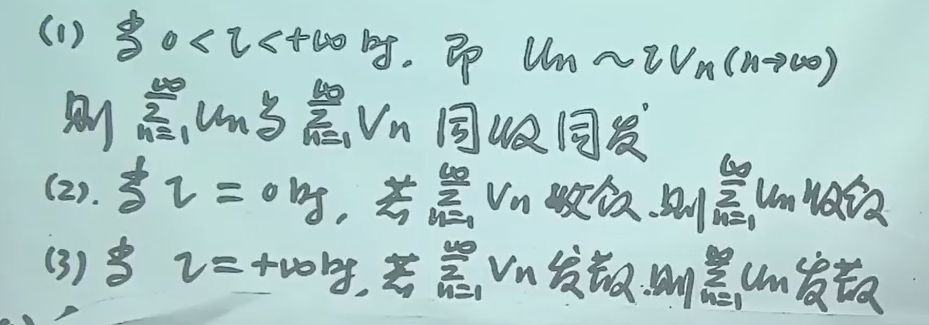 (1) 当 0<l<+∞时, 即 Un~lVn(n→∞)
则 ∑_{n=1}^{∞} Un与 ∑_{n=1}^{∞} Vn 同收同发
(2). 当 l=0时, 若 ∑_{n=1}^{∞} Vn 收敛.则 ∑_{n=1}^{∞} Un收敛
(3) 当 l=+∞时, 若 ∑_{n=1}^{∞} Vn 发散.则 ∑_{n=1}^{∞} Un发散